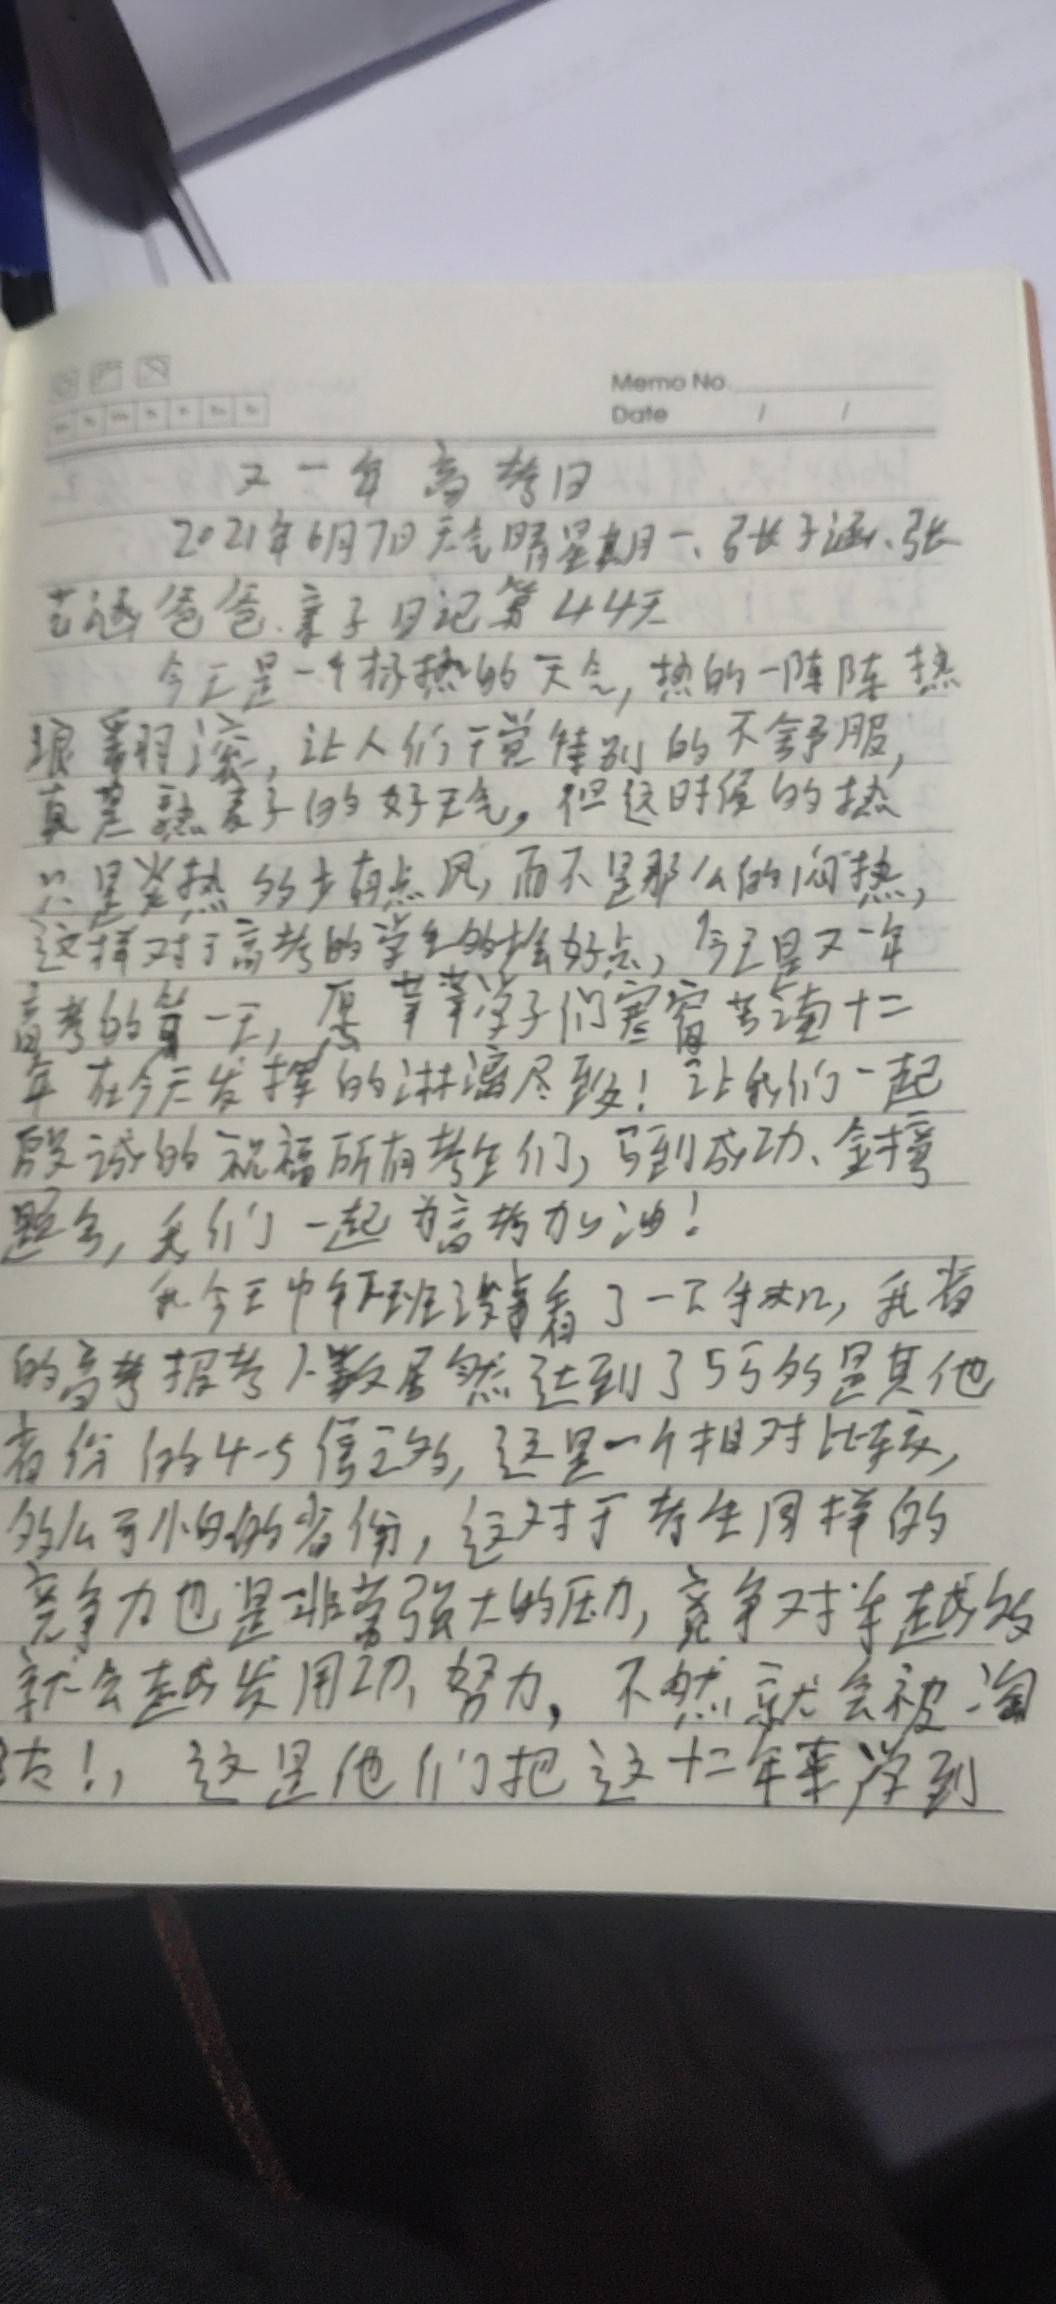 Memo No.
Date / /
又一年高考日
2021年6月7日天气晴星期一、张子涵、张
艺涵爸爸.亲子日记第44天
今天是一个热的天气,热的一阵阵热
浪翻滚,让人们干觉特别的不舒服,
真是熟麦子的好天气,但这时候的热
只是炎热的少有点风,而不是那么的闷热,
这样对于高考的学生的好点,今天是又一年
高考的第一天,愿莘莘学子们寒窗苦读十二
年在今天发挥的淋漓尽致!让我们一起
殷诚的祝福所有考生们,马到成功、金榜
题名,我们一起为高考加油!
我今天中午下班看了一下手机,我省
的高考报考人数居然达到了55多是其他
省份的4-5倍之多,这是一个相对比较,
多么可怕的省份,这对于考生同样的
竞争力也是非常强大的压力,竞争对手越多
就会越发用功,努力,不然就会被淘
汰!,这是他们把这十二年来学到